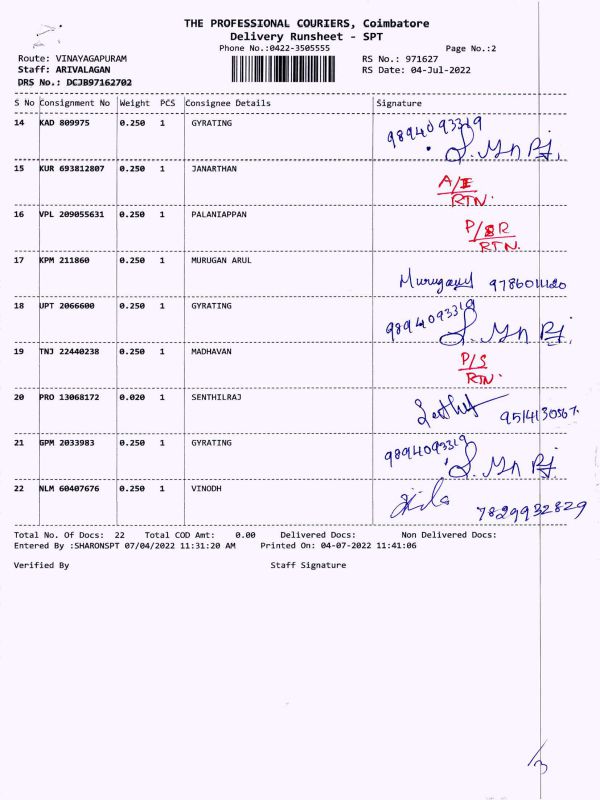 THE PROFESSIONAL COURIERS, Coimbatore
Delivery Runsheet - SPT
Phone No.:0422-3505555 Page No.:2
Route: VINAYAGAPURAM RS No.: 971627
Staff: ARIVALAGAN RS Date: 04-Jul-2022
DRS No.: DCJB97162702
S No Consignment No Weight PCS Consignee Details Signature
14 KAD 809975 0.250 1 GYRATING 9894093319
15 KUR 693812807 0.250 1 JANARTHAN A/I
RTN.
16 VPL 209055631 0.250 1 PALANIAPPAN P/SR
RTN.
17 KPM 211860 0.250 1 MURUGAN ARUL
18 UPT 2066600 0.250 1 GYRATING 9894093319
19 TNJ 22440238 0.250 1 MADHAVAN P/S
RTN.
20 PRO 13068172 0.020 1 SENTHILRAJ 9514130567.
21 GPM 2033983 0.250 1 GYRATING 9894093319
22 NLM 60407676 0.250 1 VINODH 7829932829
Total No. Of Docs: 22 Total COD Amt: 0.00 Delivered Docs: Non Delivered Docs:
Entered By :SHARONSPT 07/04/2022 11:31:20 AM Printed On: 04-07-2022 11:41:06
Verified By Staff Signature